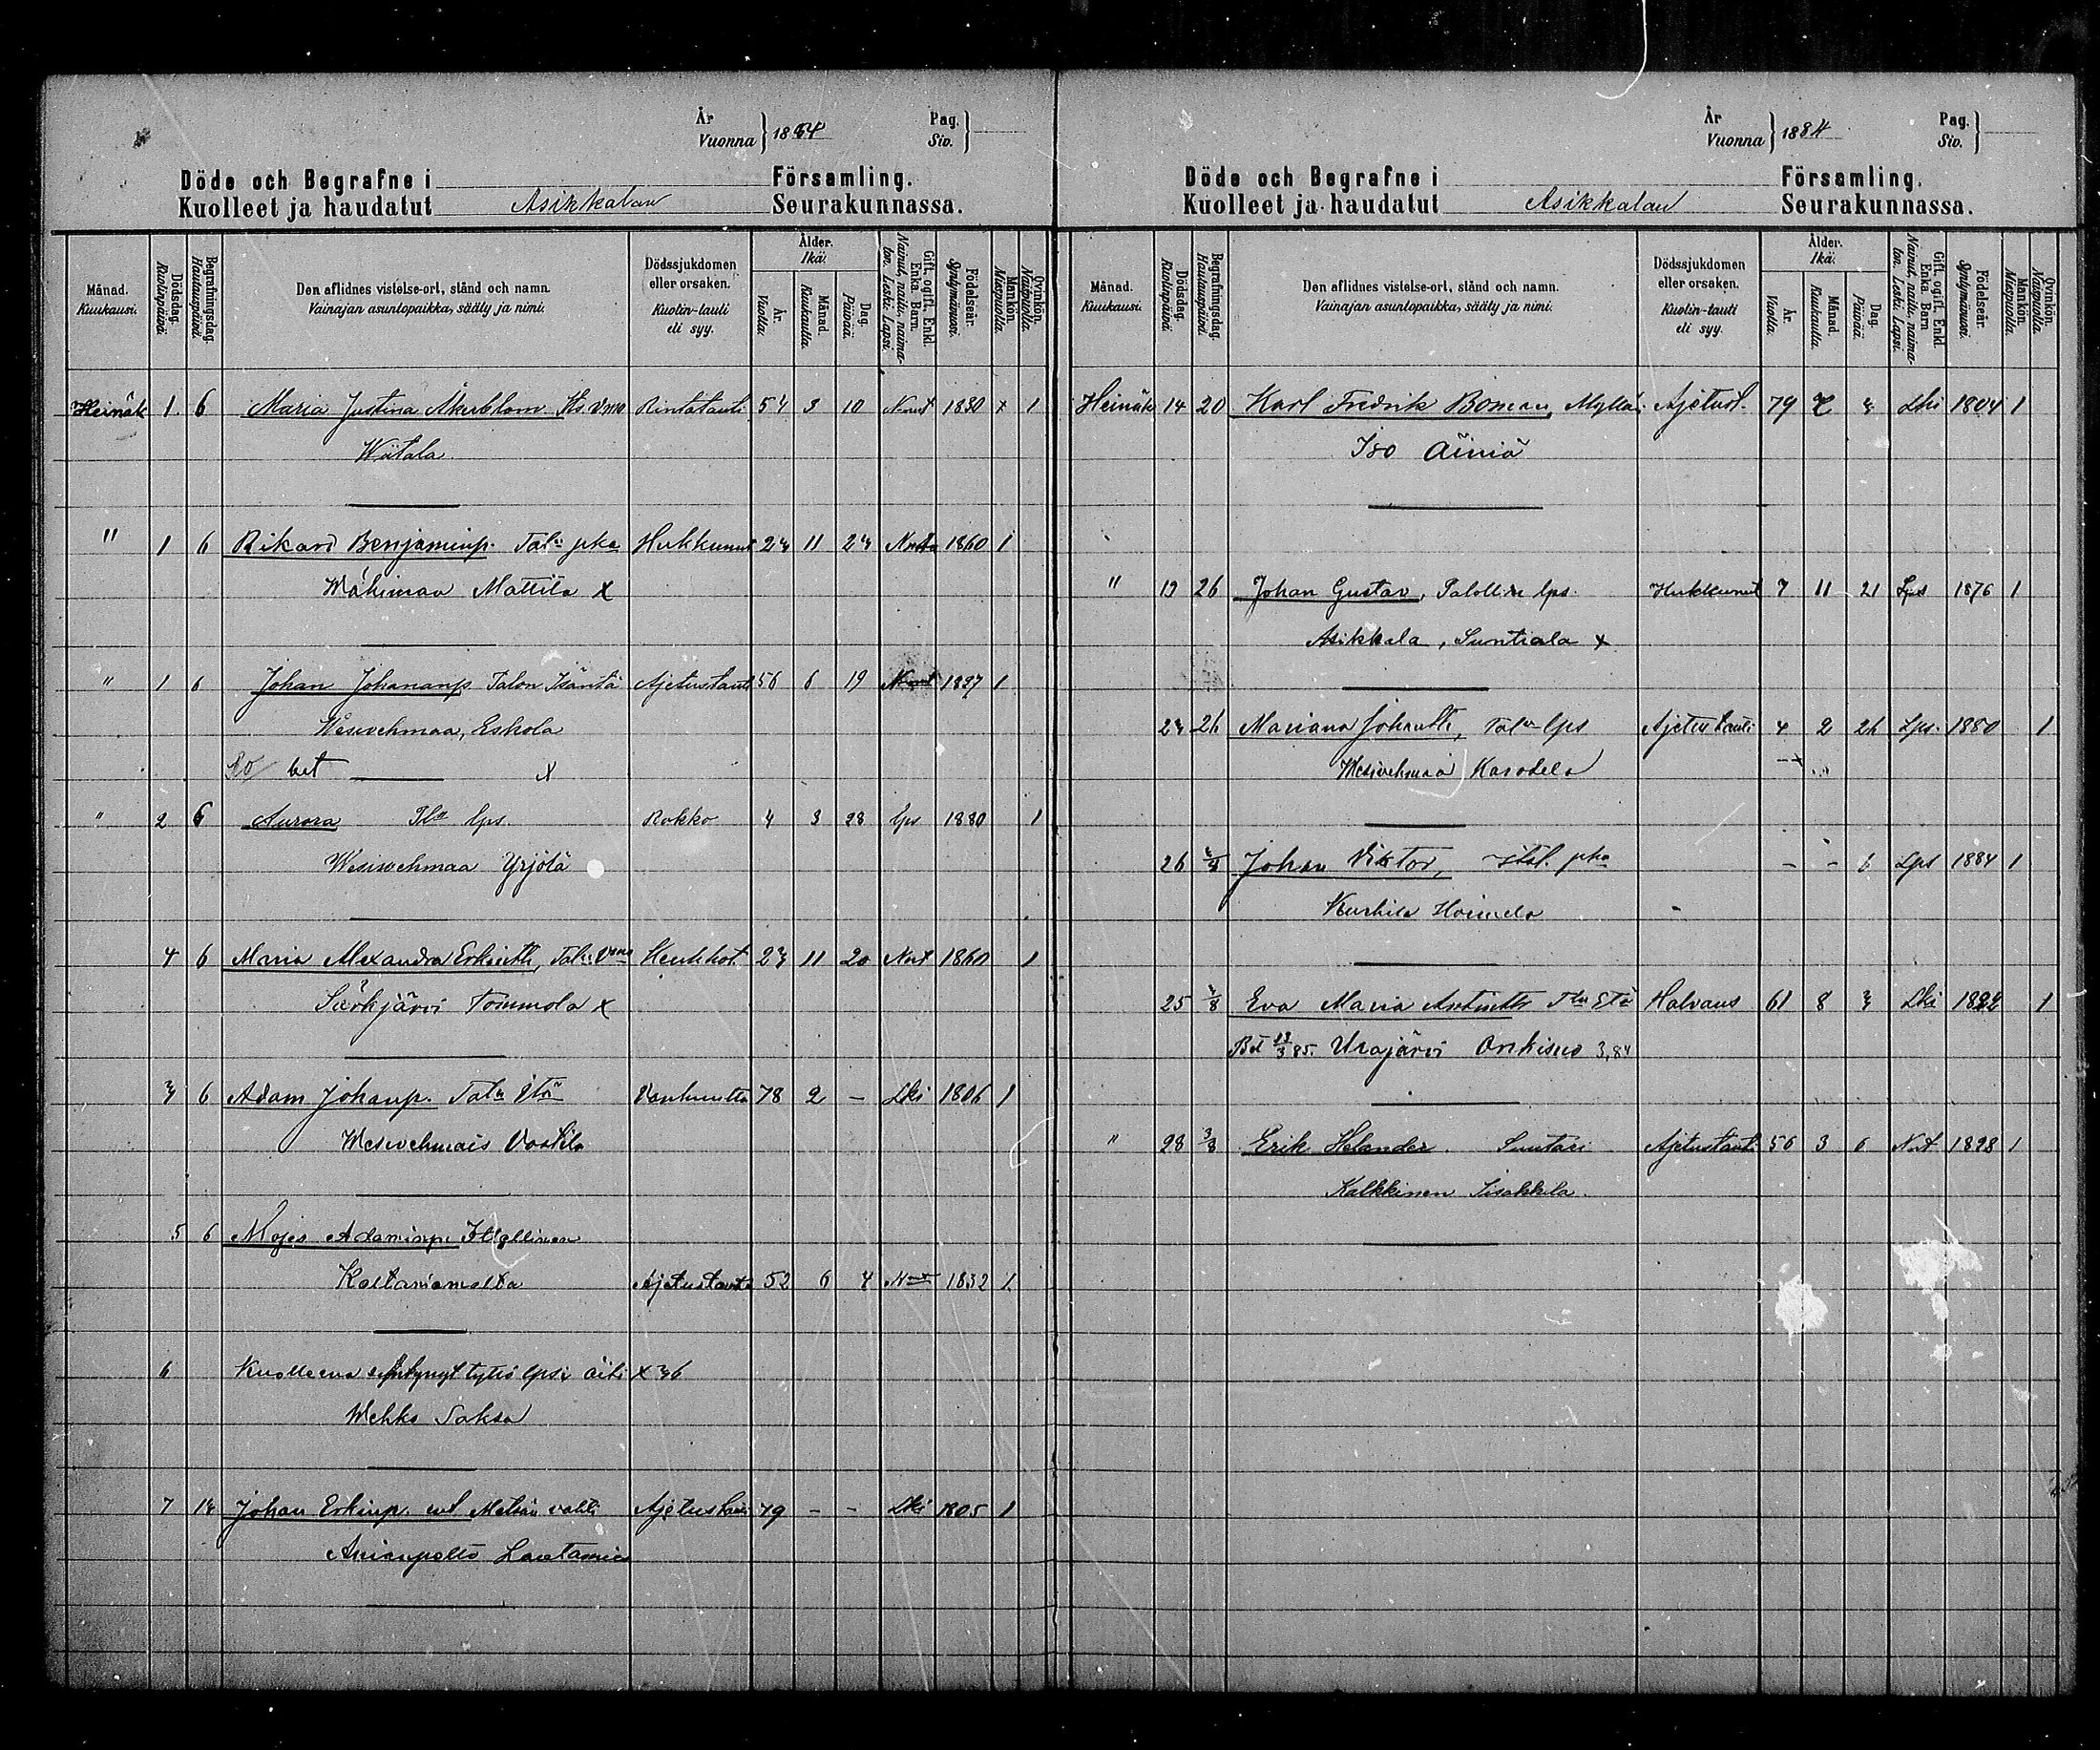 År Vuonna } 1884 Pag. Siv. }
Döde och Begrafne i Församling.
Kuolleet ja haudatut Asikkalan Seurakunnassa.
Månad. Kuukausi. Dödsdag. Kuolinpäivä. Begrafningsdag. Hautauspäivä. Den aflidnes vistelse-ort, stånd och namn. Vainajan asuntopaikka, sääty ja nimi. Dödssjukdomen eller orsaken. Kuolin-tauti eli syy. Ålder. Ikä. År. Vuotta. Månad. Kuukautta. Dag. Päivää. Gift, ogift, Enkl. Enka, Barn. Nainut, naitu, naimaton. Leski. Lapsi. Födelseår. Syntymävuosi. Mankön. Miespuolia. Qvinkön. Naispuolia.
Heinäk 1 6 Maria Justina Åkerblom Rintatauti 54 3 10 Naut 1830 x 1
Wiitala
" 1 6 Rikard Benjaminp. Tal. pka Hukkunut 24 11 24 1860 1
Wähimaa Mattila x
" 1 6 Johan Johananp. Talon Isäntä Ajetustauti 56 6 19 Naut 1827 1
Wesivehmaa, Eskola
bet x
" 2 6 Aurora Tln lps Rokko 4 3 28 lps 1880 1
Wesivehmaa Yrjölä
4 6 Maria Alexandra Erkintr, Tal. Vmo Keuhkot. 23 11 20 Nut 1860 1
Särkjärvi Tommola x
3 6 Adam Johanp. Taln Vanhuutta 78 2 – Lki 1806 1
Wesivehmais Vastila
5 6 Mojes Adaminp. Itsellinen
Kaltaniemelta Ajetustauti 52 6 4 Naut 1832 1
6 Kuolleena syntynyt tyttö lpsi äiti x 36
Wehko Saksa
7 14 Johan Erkinp. Ajetustauti 79 – – Lki 1805 1
Anianpelto Lautamies
År Vuonna } 1884 Pag. Siv. }
Döde och Begrafne i Församling.
Kuolleet ja haudatut Asikkalan Seurakunnassa.
Månad. Kuukausi. Dödsdag. Kuolinpäivä. Begrafningsdag. Hautauspäivä. Den aflidnes vistelse-ort, stånd och namn. Vainajan asuntopaikka, sääty ja nimi. Dödssjukdomen eller orsaken. Kuolin-tauti eli syy. Ålder. Ikä. År. Vuotta. Månad. Kuukautta. Dag. Päivää. Gift, ogift, Enkl. Enka, Barn Nainut, naitu, naimaton. Leski. Lapsi. Födelseår. Syntymävuosi. Mankön. Miespuolia. Qvinkön. Naispuolia.
Heinäk 14 20 Karl Fredrik Boman, Mylläri Ajetust. 79 Lki 1804 1
Iso Äiniä
" 19 26 Johan Gustav, lps. Hukkunut 7 11 21 Lps 1876 1
Asikkala, Suntiala x
24 26 Mariana Johantr, Taln lps Ajetustauti 4 2 26 Lps. 1880 1
Wesivehmaa
26 Johan Viktor, pka – – 6 Lps 1884 1
Kurhila
25 Eva Maria Halvaus 61 8 3 Lki 1822 1
Bet 13/3 85. Urajärvi 3,84
" 28 3/8 Erik Helander. Suutari Ajetustauti 56 3 6 Nut 1828 1
Kalkkinen Iisakkila.